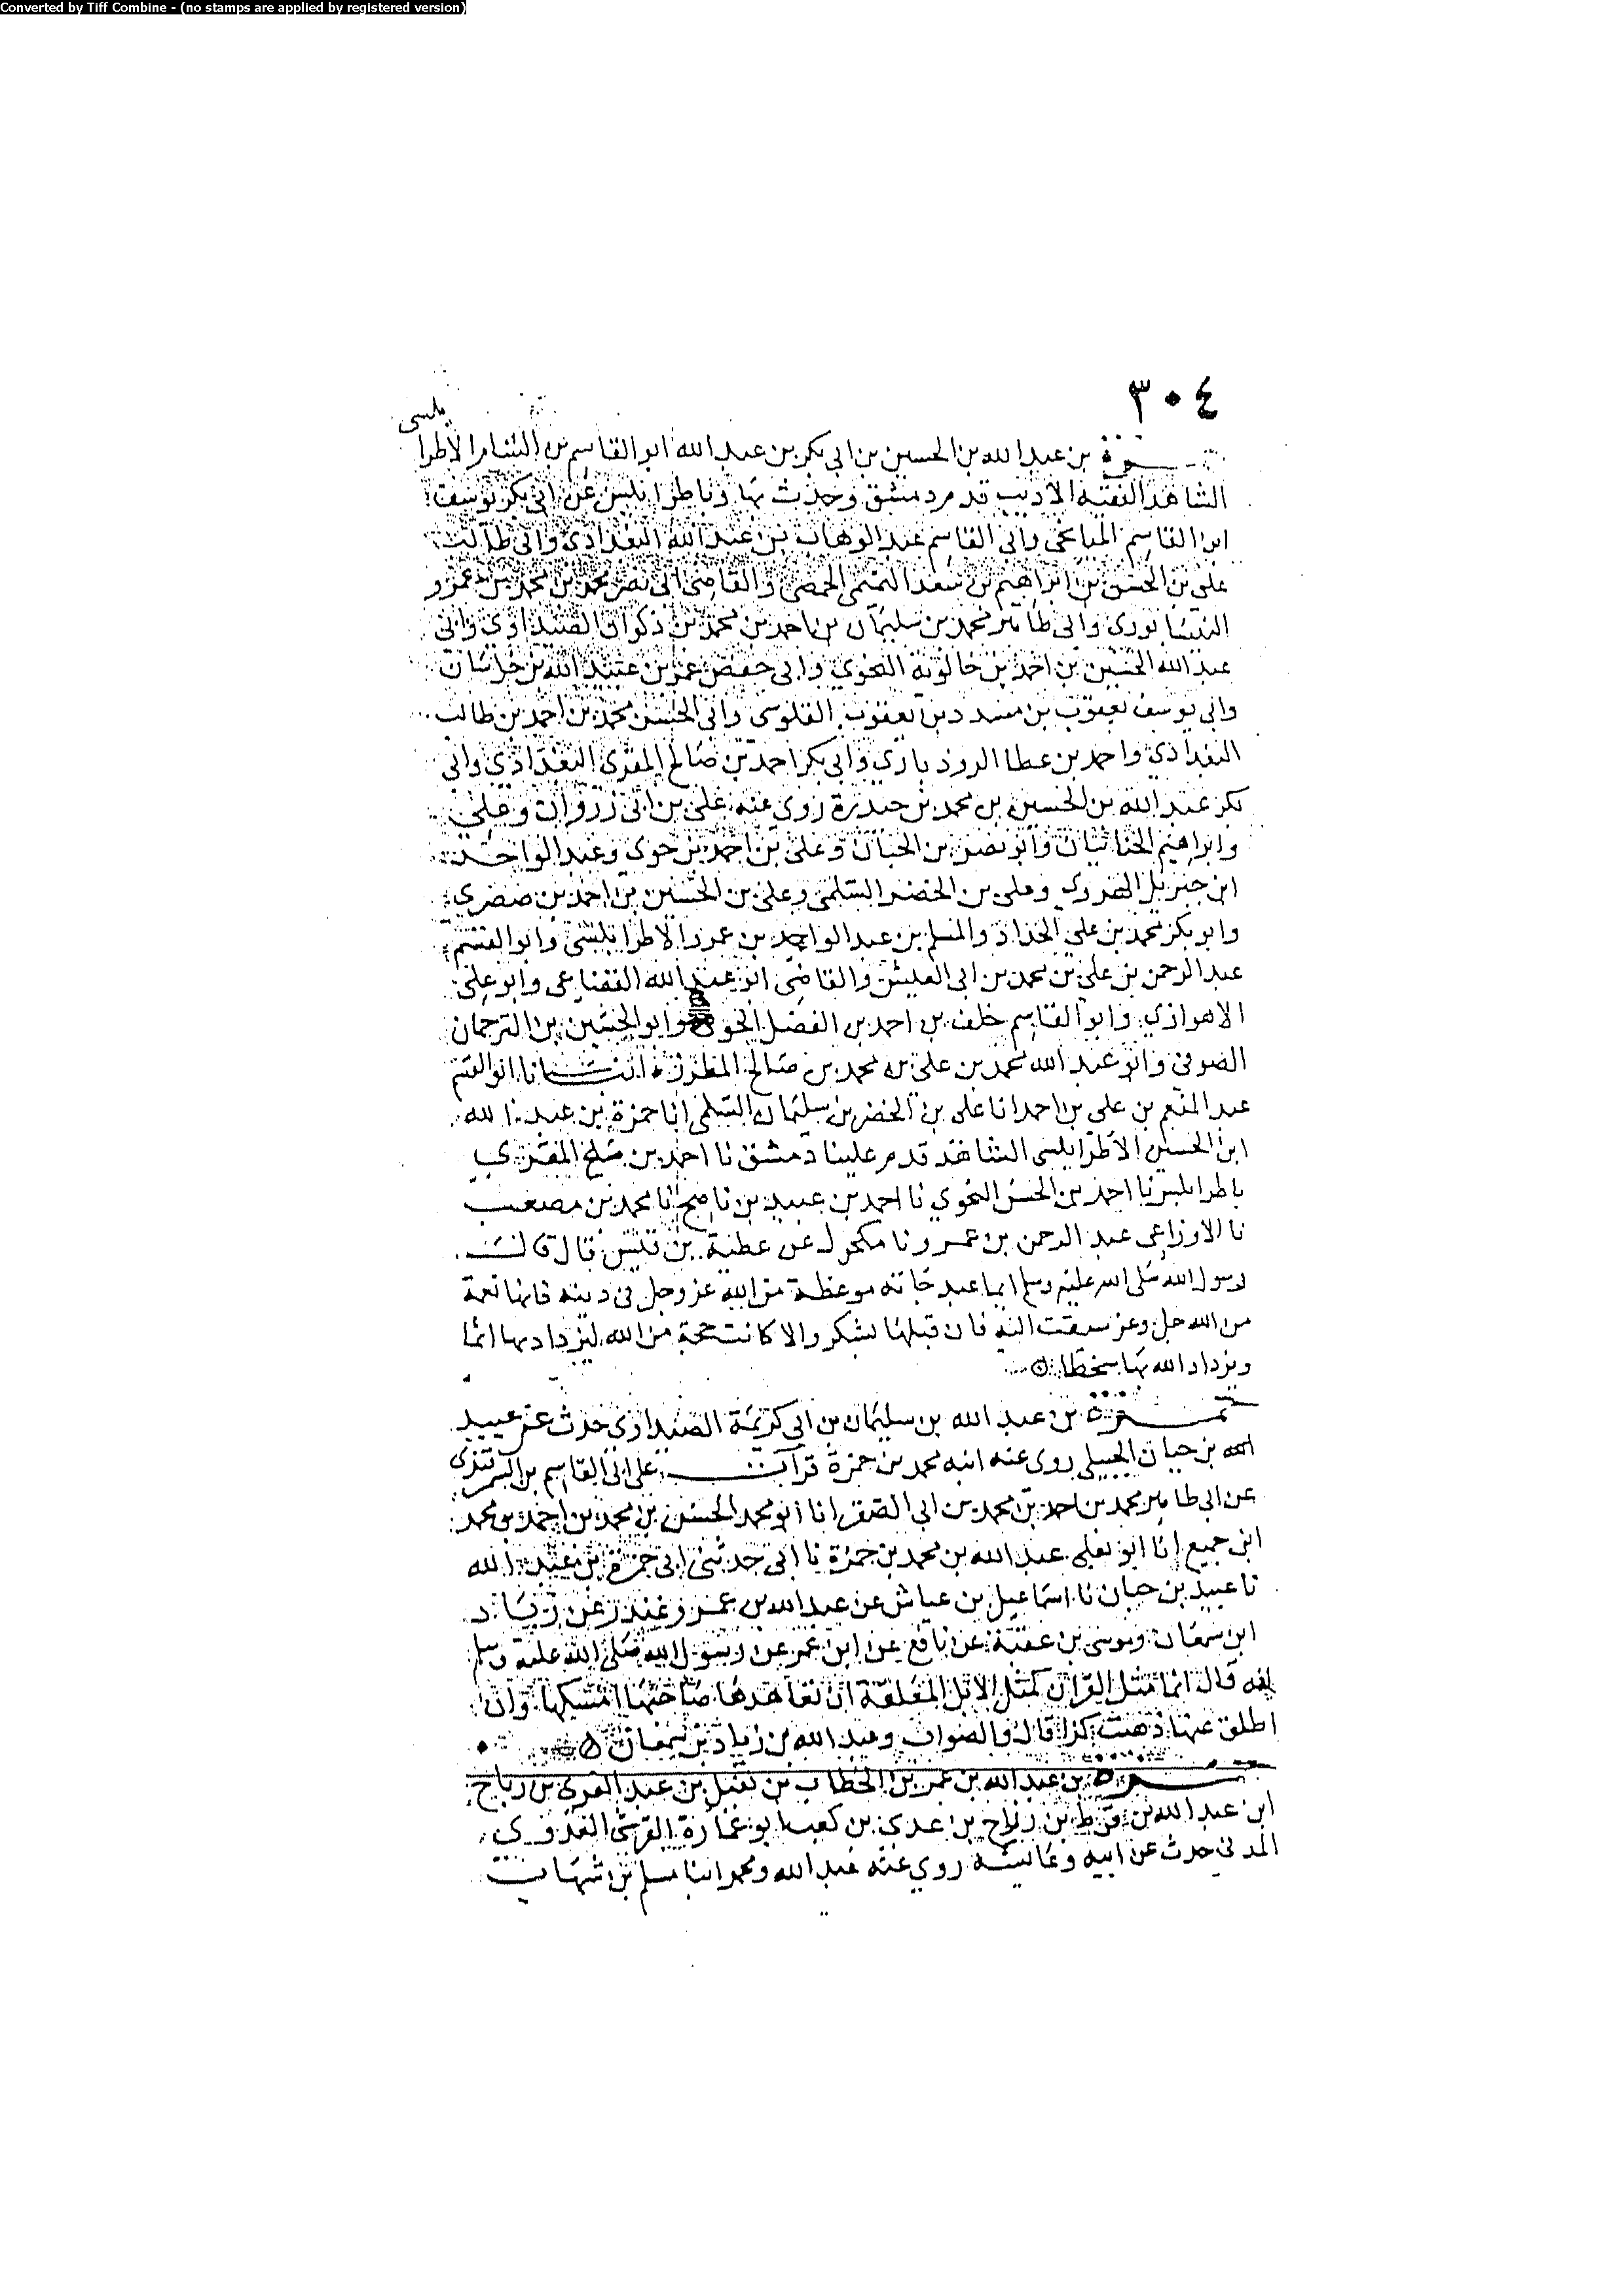 Converted by Tiff Combine - (no stamps are applied by registered version)
٣٠٤
حمزة بن عبد الله بن الحسين بن ابي بكر بن عبد الله ابو القاسم بن الشام الاطرا
بلسى
الشاهد الفقيه الاديب قدم دمشق وحدث بها وباطرابلس عن ابي بكر يوسف
ابن القاسم الميانجي وابي القاسم عبد الوهاب بن عبد الله البغدادي وابي طالب
علي بن الحسن بن ابراهيم بن سعد التميمي الحمصي والقاضي ابي نصر محمد بن محمد بن عمرو
النيسابوري وابي طاهر محمد بن سليمان بن احمد بن محمد بن ذكوان الصيداوي وابي
عبد الله الحسين بن احمد بن خالويه النحوي وابي حفص عمر بن عبيد الله بن خراسان
وابي يوسف يعقوب بن مسدد بن يعقوب القلوسي وابي الحسن محمد بن احمد بن طالب
البغدادي واحمد بن عطا الروذباري وابي بكر احمد بن صالح المقري البغدادي وابي
بكر عبد الله بن الحسين بن محمد بن حيدرة روى عنه علي بن ابي زروان وعلي
وابراهيم الحنائيان وابو نصر بن الحبان وعلي بن احمد بن حوى وعبد الواحد
ابن جبريل وعلي بن الخضر السلمي وعلي بن الحسين بن احمد بن صصري
وابو بكر محمد بن علي الحداد والمسلم بن عبد الواحد بن عمرو الاطرابلسي وابو القسم
عبد الرحمن بن علي بن محمد بن ابي العيش والقاضي ابو عبد الله القضاعي وابو علي
الاهوازي وابو القاسم خلف بن احمد بن الفضل وابو الحسين بن الترجمان
الصوفي وابو عبد الله محمد بن علي بن محمد بن صالح المطرز انبانا ابو القسم
عبد المنعم بن علي بن احمد انا علي بن الخضر بن سليمان السلمي انا حمزة بن عبد الله
ابن الحسين الاطرابلسي الشاهد قدم علينا دمشق نا احمد بن صلح المقري
باطرابلس نا احمد بن الحسن النحوي نا احمد بن عبيد بن ناصح نا محمد بن مصعب
نا الاوزاعي عبد الرحمن بن عمرو نا مكحول عن عطية بن قيس قال قال
رسول الله صلى الله عليه وسلم ايما عبد جاته موعظة من الله عز وجل في دينه فانها نعمة
من الله جل وعز سيقت اليه فان قبلها بشكر والا كانت حجة من الله ليزداد بها اثما
ويزداد الله بها سخطا
حمزة بن عبد الله بن سليمان بن ابي كريمة الصيداوي حدث عن عبيد
الله بن حبان الجبيلي روى عنه ابنه محمد بن حمزة قرات على ابي القاسم بن
عن ابي طاهر محمد بن احمد بن محمد بن ابي الصقر انا ابو محمد الحسن بن محمد بن احمد بن محمد
ابن جميع انا ابو يعلى عبد الله بن محمد بن حمزة نا ابي حدثني ابي حمزة بن عبد الله
نا عبيد بن حبان نا اسماعيل بن عياش عن عبد الله بن عمر وعبد ربه عن زياد
ابن سمعان وموسى بن عقبة عن نافع عن ابن عمر عن رسول الله صلى الله عليه وسلم
انه قال انما مثل القران كمثل الابل المعلقة ان تعاهدها صاحبها امسكها وان
اطلق عنها ذهبت كذا قال والصواب وعبد الله بن زياد بن سمعان
حمزة بن عبد الله بن عمر بن الخطاب بن نفيل بن عبد العزى بن رباح
ابن عبد الله بن قرط بن رزاح بن عدي بن كعب ابو عمارة القرشي العدوي
المدني حدث عن ابيه وعائشة روى عنه عبد الله ومحمد ابنا مسلم بن شهاب